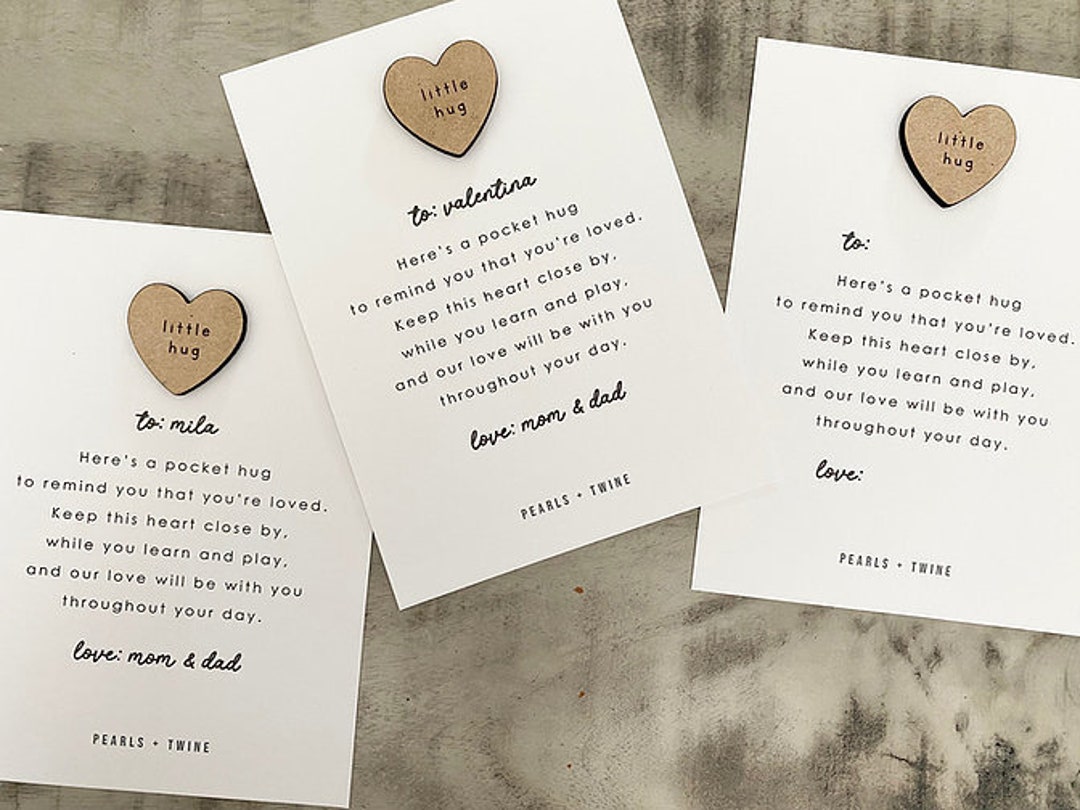 little
hug
to: mila
Here's a pocket hug
to remind you that you're loved.
Keep this heart close by,
while you learn and play,
and our love will be with you
throughout your day.
love: mom & dad
PEARLS + TWINE
little
hug
to: valentina
Here's a pocket hug
to remind you that you're loved.
Keep this heart close by,
while you learn and play,
and our love will be with you
throughout your day.
love: mom & dad
PEARLS + TWINE
little
hug
to:
Here's a pocket hug
to remind you that you're loved.
Keep this heart close by,
while you learn and play,
and our love will be with you
throughout your day.
love:
PEARLS + TWINE